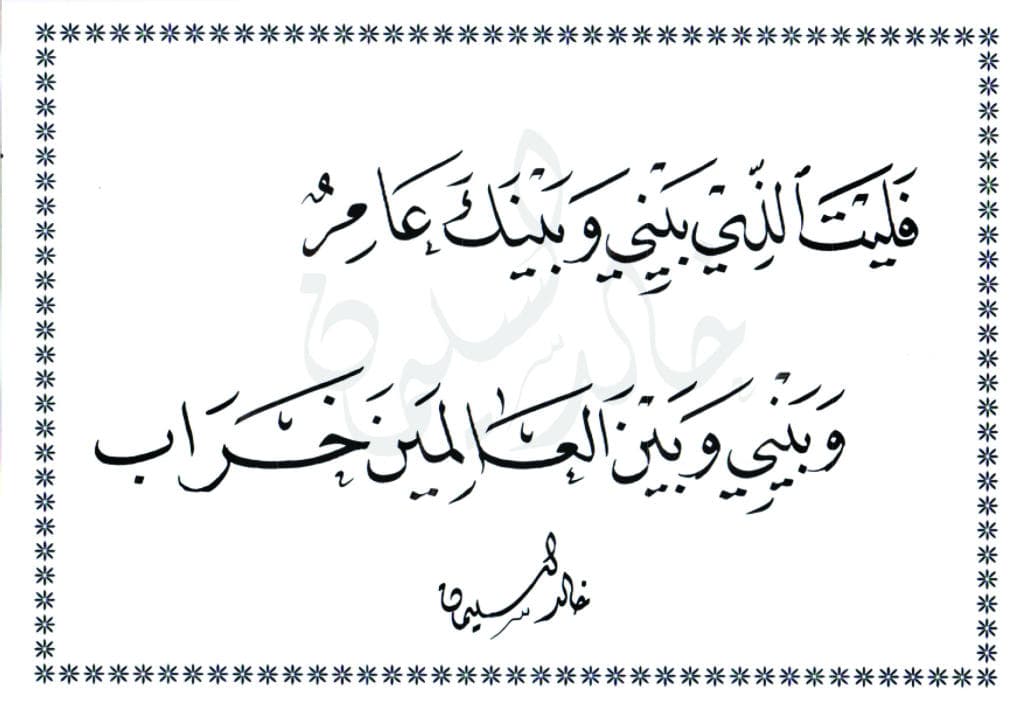 فَلَيْتَ ٱلَّذِيْ بَيْنِي وَبَيْنَكَ عَامِرٌ
وَبَيْنِي وَبَيْنَ العَالَمِينَ خَرَاب
خالد السليمان